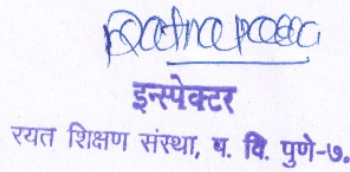 इन्स्पेक्टर
रयत शिक्षण संस्था, प. वि. पुणे-७.